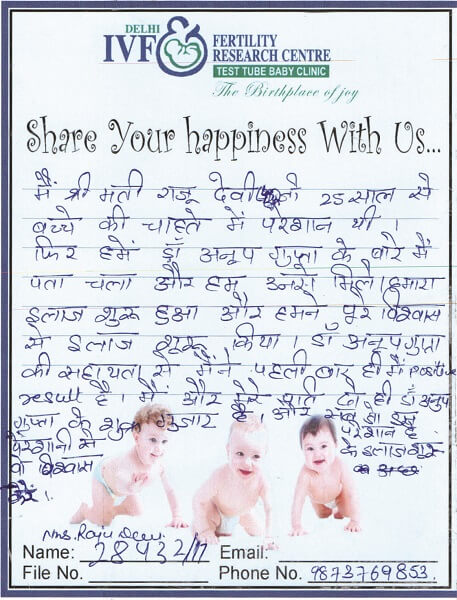 DELHI
IVF & FERTILITY
RESEARCH CENTRE
TEST TUBE BABY CLINIC
The Birthplace of joy
Share Your happiness With Us...
मैं श्री मती राजू देवी 25 साल से
बच्चे की चाहते में परेशान थी ।
फिर हमें डॉ अनूप गुप्ता के बारे में
पता चला और हम उनसे मिले। हमारा
इलाज शुरू हुआ और हमने पूरे विश्वास
से इलाज शुरू किया। डॉ अनूप गुप्ता
की सहायता से मैने पहली बार ही में positive
result है। मैं और मेरे पति दो ही डॉ अनुप
गुप्ता के शुक्र गुजार है। और सब जो इस
परेशानी से परेशान है
वो विश्वास के इलाज शुरू
करे।
Mrs. Raju Devi
Name: 28432/17 Email:
File No. Phone No. 9873769853.